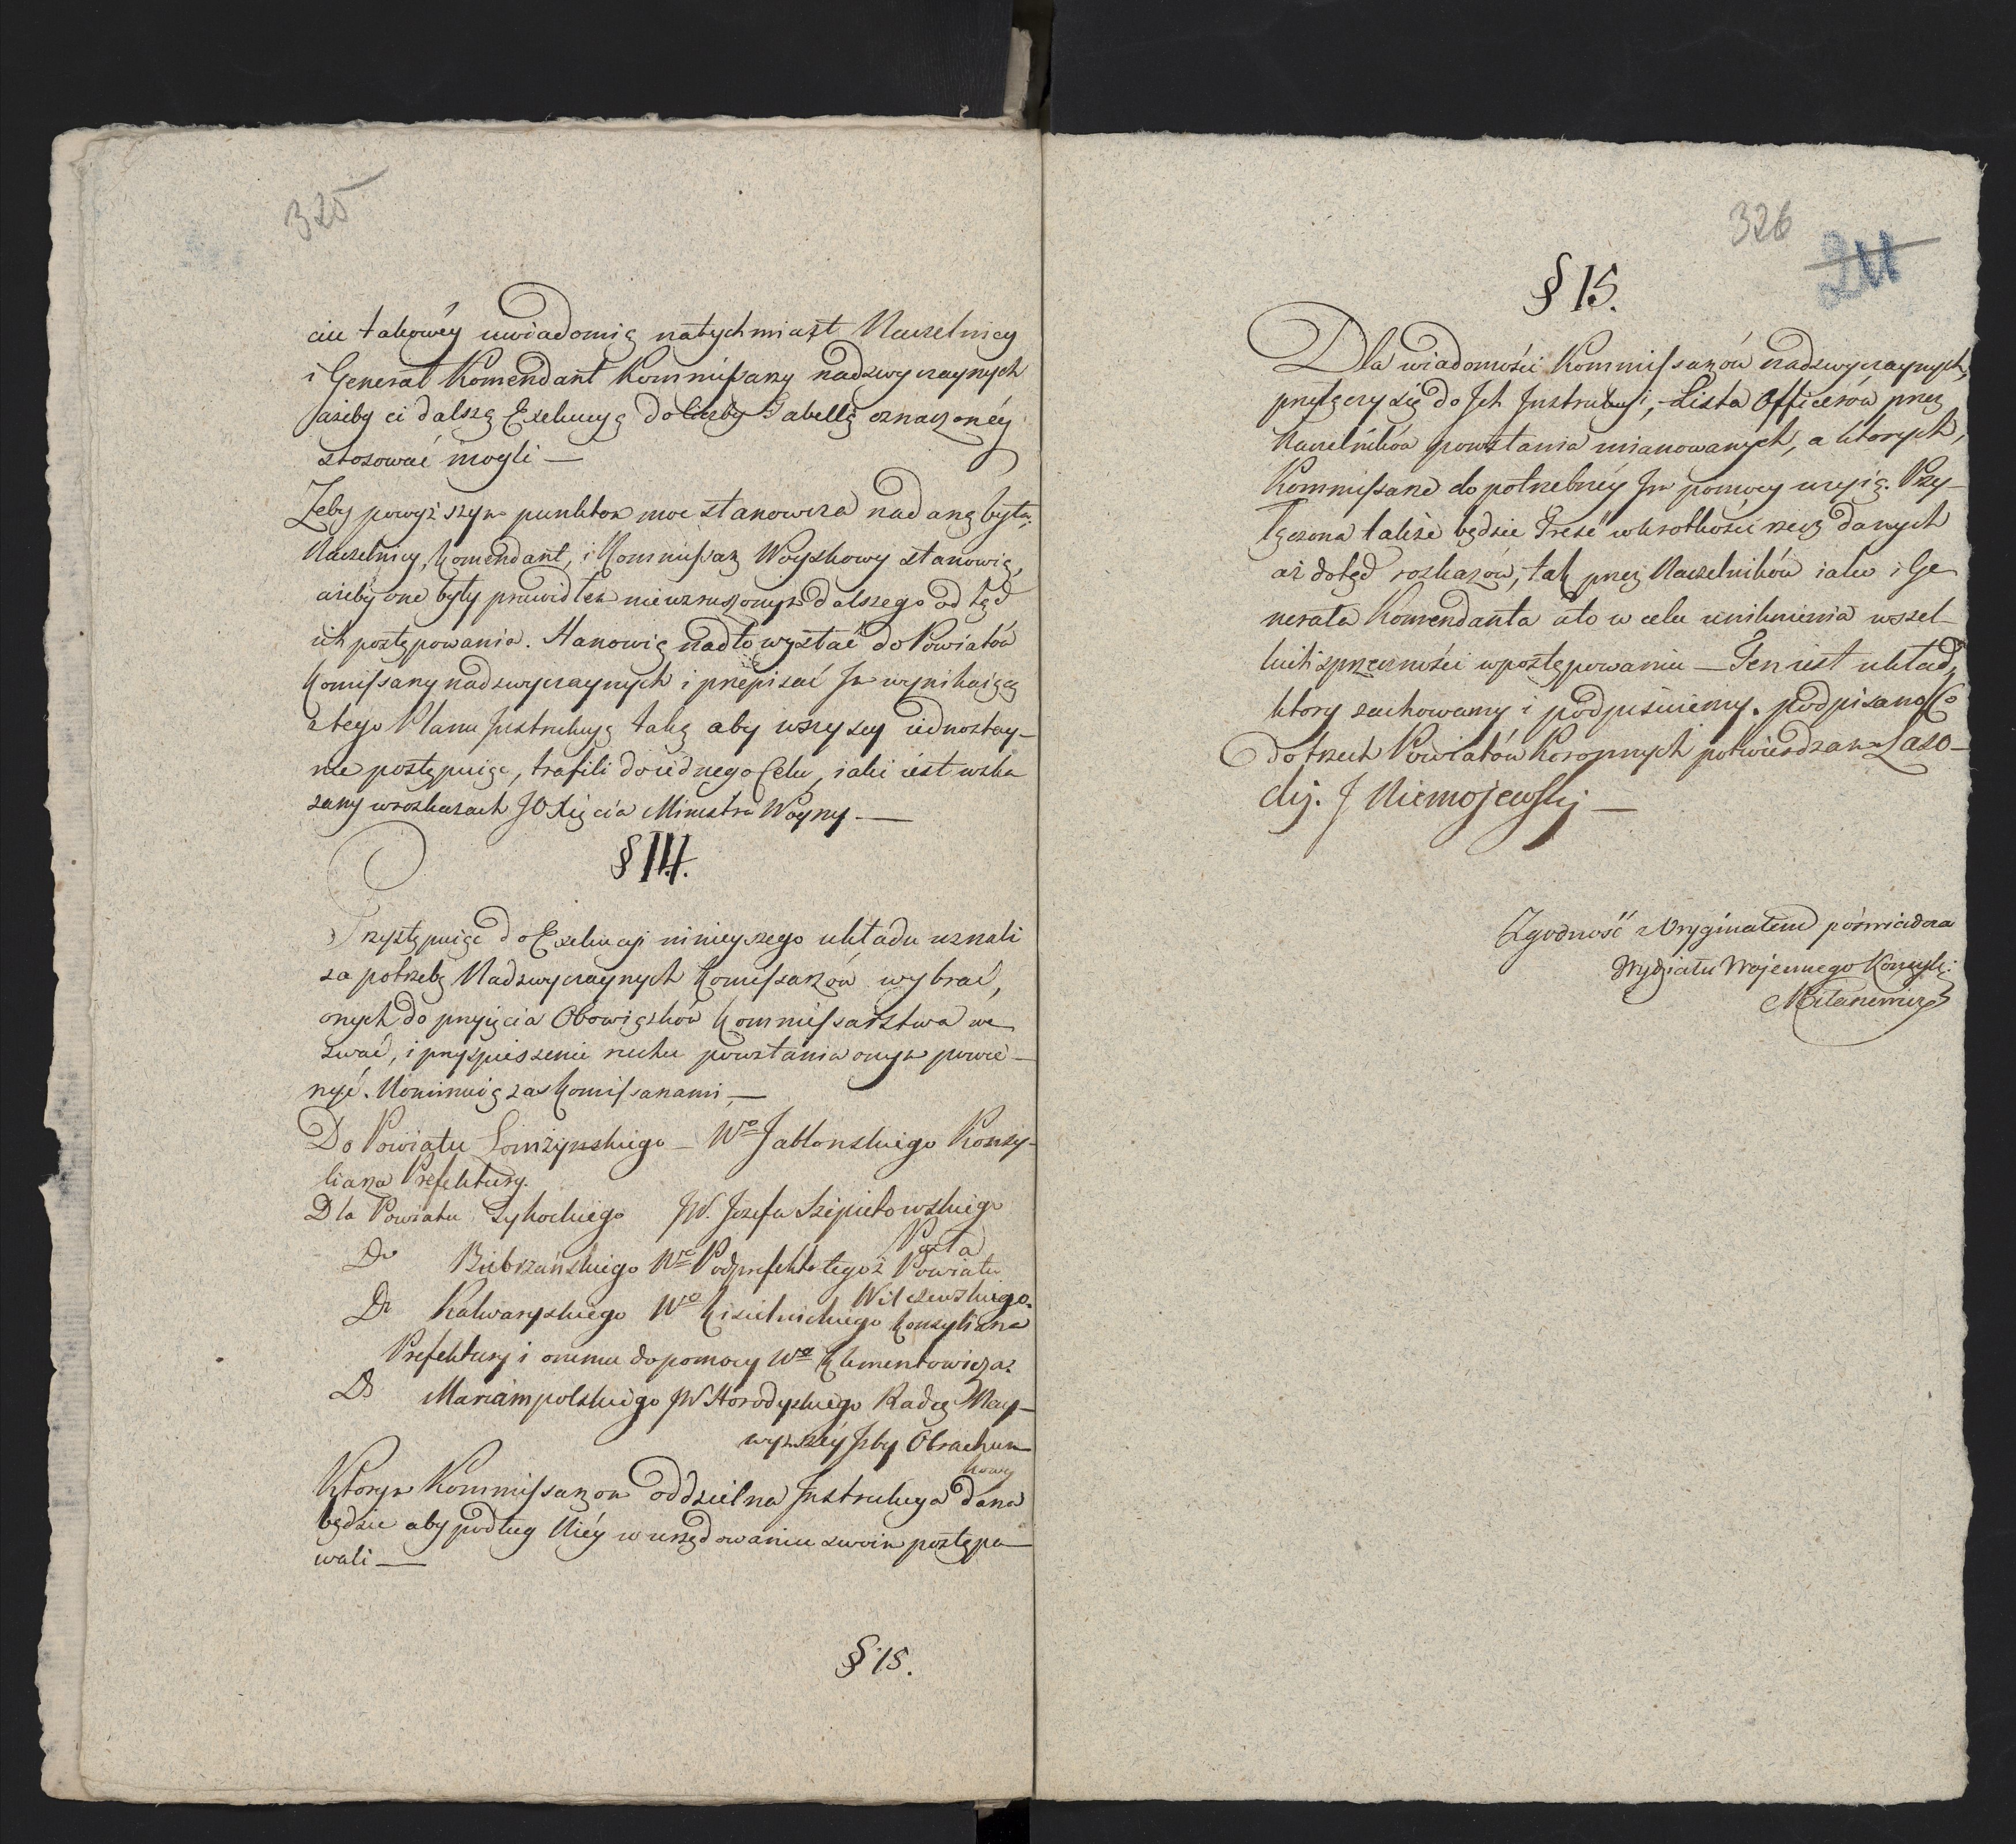 325
ciu takowéy uwiadomią natychmiast Naczelnicy
i Generał Komendant Kommissarzy nadzwyczaynych
ażeby ci dalszą Exekucyą do liczby Tabellą oznaczonéy
stosować mogli —
Żeby powyższym punktom moc stanowcza nadaną była,
Naczelnicy, Komendant, i Kommissarz Woyskowy stanowią,
ażeby one były prawidłem niewzruszonym dalszego odtąd
ich postępowania. Stanowią nadto wysłać do Powiatów
Komissarzy nadzwyczaynych i przepisać Im wynikaiącą
z tego Planu Instrukcyą taką aby wszyscy iednostay-
nie postępuiąc, trafili do iednego Celu, iaki iest wska
zany w rozkazach JO Xięcia Ministra Woyny. —
§ 14.
Przystępuiąc do Exekucyi ninieyszego układu uznali
za potrzebę Nadzwyczaynych Komissarzów wybrać,
onych do przyięcia Obowiązków Kommissarstwa we
zwać, i przyspieszenie ruchu powstania onym powie-
rzyć. Nominuią zaś Komissarzami, —
Do Powiatu Łomżyńskiego — Wgo Jabłonskiego Konsy-
liarza Prefektury.
Dla Powiatu Tykockiego JW. Józefa Szepietowskiego
Posła
Do Biebrzańskiego Wgo Podprefekta tegoż Powiatu
Wilczewskiego.
Do Kalwaryskiego Wgo Kisielnickiego Konsyliarza
Prefektury i onemu do pomocy Wgo Klimentowicza.
Do Mariampolskiego JW Horodyskiego Radcę Nay-
wyższéy Izby Obrachun
kowy
Którym Kommissarzom oddzielna Instrukcya dana
będzie aby podług Niéy w urzędowaniu swoim postępo-
wali —
§ 15.
326
211
§ 15.
Dla wiadomości Kommissarzów nadzwyczaynych,
przyłączy się do Ich Instrukcyi, Lista Officerów przez
Naczelników powstania mianowanych, a których,
Kommissarze do potrzebnéy Im pomocy użyią. Przy-
łączona także będzie Treść w krótkości rzecz danych
aż dotąd rozkazów, tak przez Naczelników iako i Ge
nerała Komendanta a to w celu uniknienia wszel-
kich sprzeczności w postępowaniu — Ten iest układ,
który zachowamy i podpisuiemy. podpisano Co
do trzech Powiatów Koronnych potwierdzam Laso-
cki. J Niemojewski —
Zgodność z Oryginałem poświadcza
Wydziału Wojennego Konsyli: